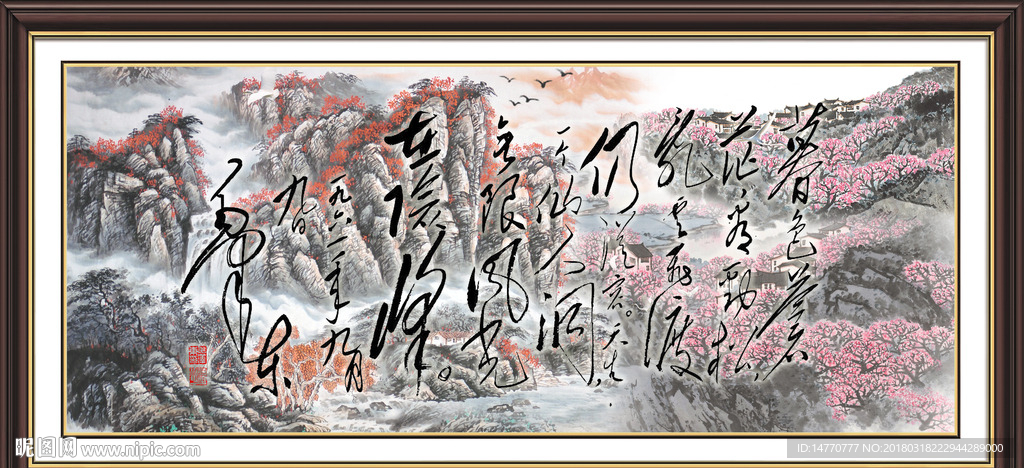 暮色蒼
茫看勁松
亂雲飛渡
仍從容。天生
一个仙人洞
無限風光
在險峰。
一九六一年九月
九日
毛澤東
昵图网 www.nipic.com
ID:14770777 NO:20180318222944289000